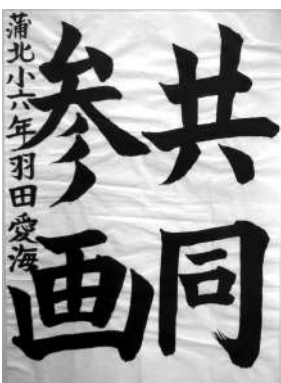 共同
参画
蒲北小六年羽田愛海